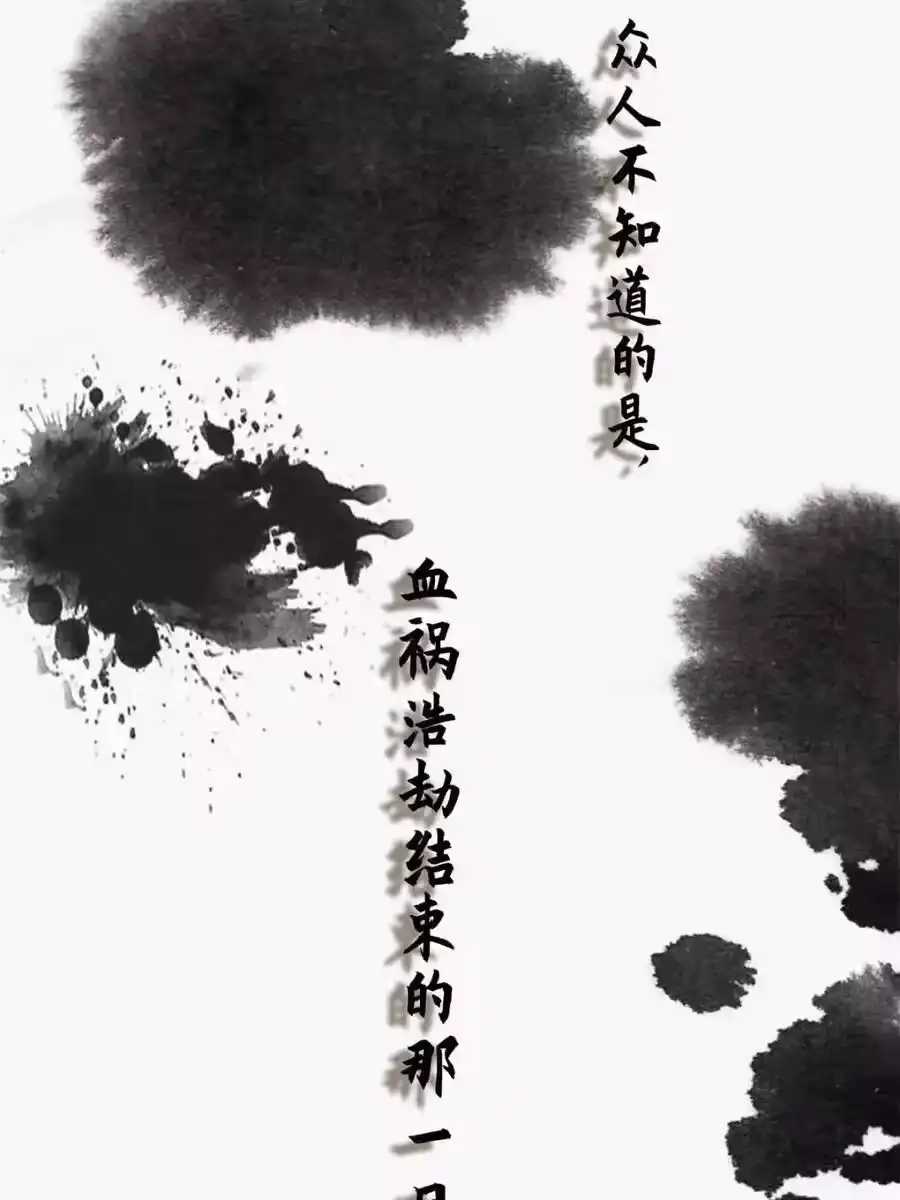 众人不知道的是，
血祸浩劫结束的那一